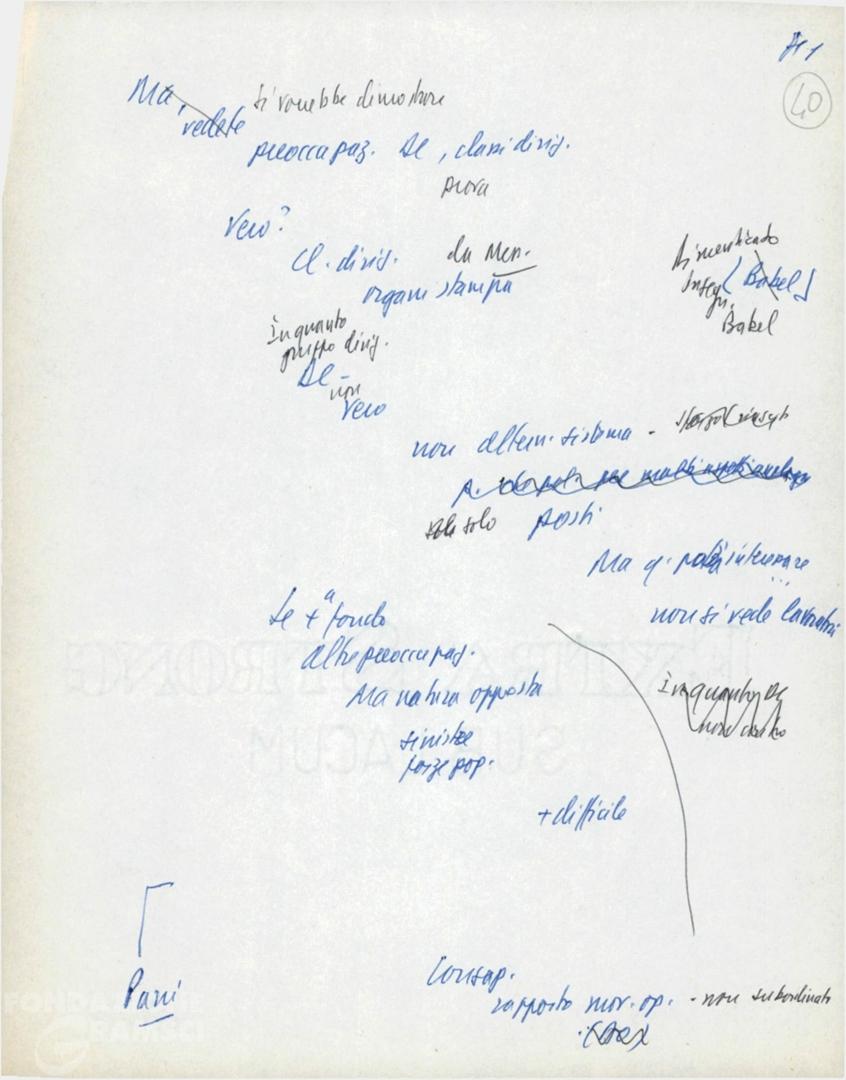 40
Ma, vedete
si vorrebbe dimostrare
preoccupaz. De, classi dirig.
prova
Vero?
Cl. dirig. da Men.
organi stampa
Dimenticato
Insegn. [Babel]
Babel
In quanto
gruppo dirig.
De -
non
Vero
non altern. sistema -
solo posti
Ma q. potrà interessare
...
non si vede lavoratori
Se + a fondo
altre preoccupaz.
Ma natura opposta
sinistre
forze pop.
In quanto De
+ difficile
Consap.
rapporto mov. op. - non subordinato
FONDAZIONE
GRAMSCI
EXTRA STRONG